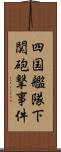 四国艦隊下
関砲撃事件